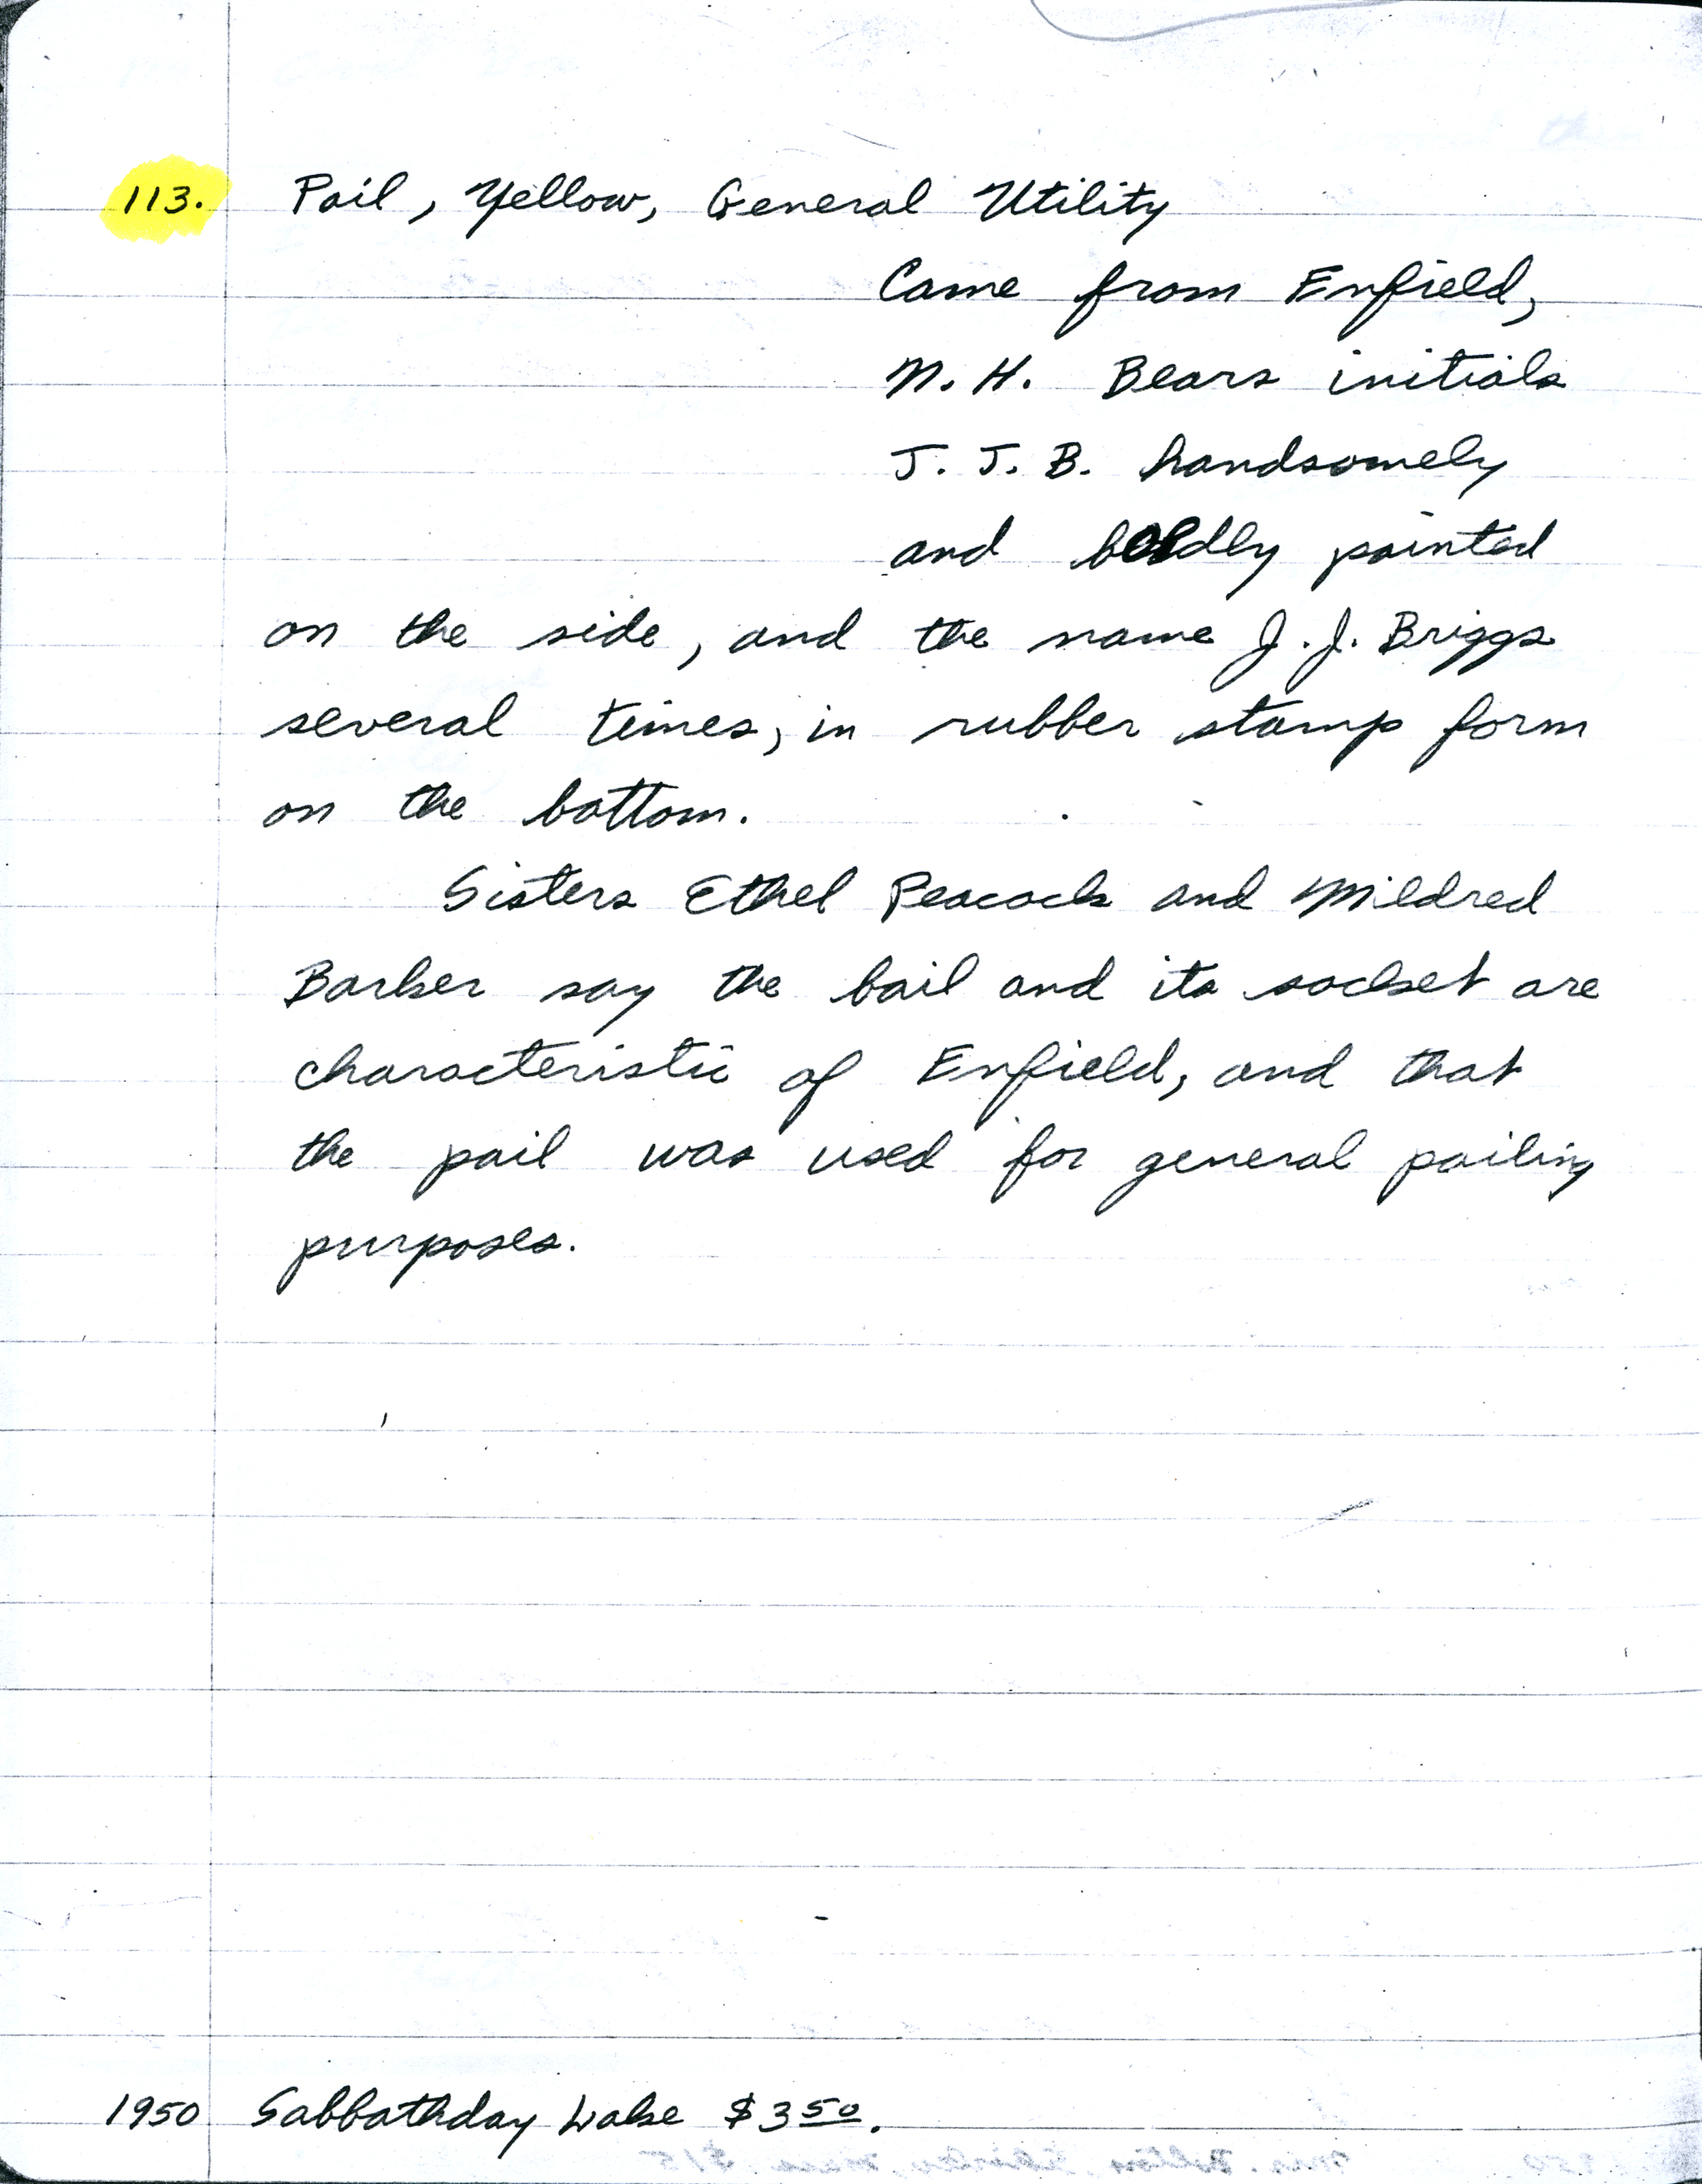 113. Pail, Yellow, General Utility
Came from Enfield,
N. H. Bears initials
J. J. B. handsomely
and boldly painted
on the side, and the name J. J. Briggs
several times, in rubber stamp form
on the bottom.
Sisters Ethel Peacock and Mildred
Barker say the bail and its socket are
characteristic of Enfield, and that
the pail was used for general pailing
purposes.
1950 Sabbathday Lake $3 50.